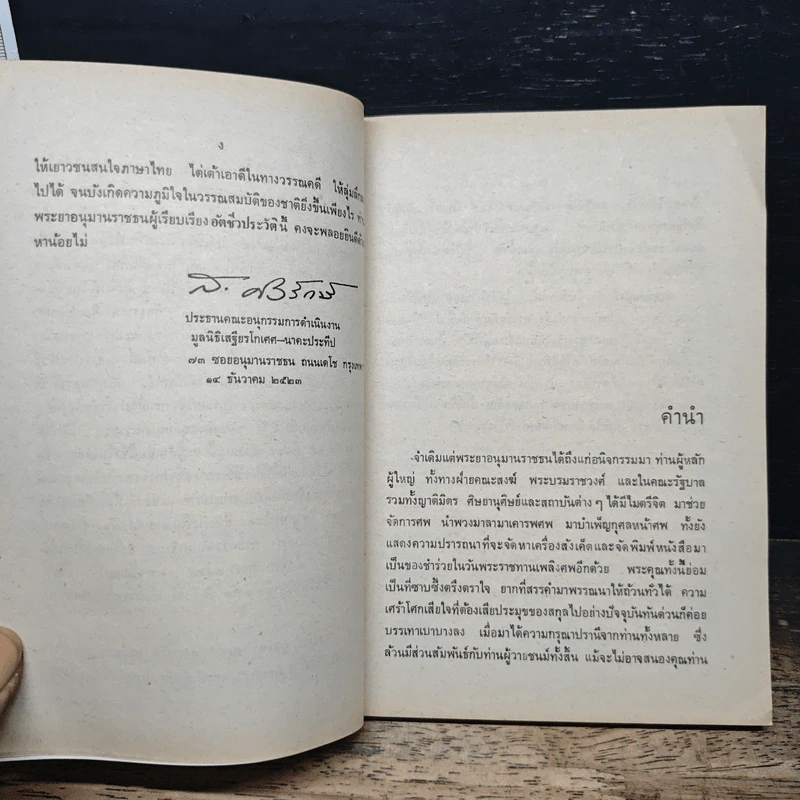 ง
ให้เยาวชนสนใจภาษาไทย ไต่เต้าเอาดีในทางวรรณคดี
ไปได้ จนบังเกิดความภูมิใจในวรรณสมบัติของชาติยิ่งขึ้นเพียงไร
พระยาอนุมานราชธนผู้เรียบเรียงอัตชีวประวัตินี้ คงจะพลอยยินดีด้วย
หาน้อยไม่
ส. ศิวรักษ์
ประธานคณะอนุกรรมการดำเนินงาน
มูลนิธิเสฐียรโกเศศ–นาคะประทีป
๗๓ ซอยอนุมานราชธน ถนนเดโช กรุงเทพฯ
๑๔ ธันวาคม ๒๕๒๓
คำนำ
จำเดิมแต่พระยาอนุมานราชธนได้ถึงแก่อนิจกรรมมา ท่านผู้หลัก
ผู้ใหญ่ ทั้งทางฝ่ายคณะสงฆ์ พระบรมราชวงศ์ และในคณะรัฐบาล
รวมทั้งญาติมิตร ศิษยานุศิษย์และสถาบันต่าง ๆ ได้มีไมตรีจิต มาช่วย
จัดการศพ นำพวงมาลามาเคารพศพ มาบำเพ็ญกุศลหน้าศพ ทั้งยัง
แสดงความปรารถนาที่จะจัดหาเครื่องสังเค็ดและจัดพิมพ์หนังสือมา
เป็นของชำร่วยในวันพระราชทานเพลิงศพอีกด้วย พระคุณทั้งนี้ย่อม
เป็นที่ซาบซึ้งตรึงตราใจ ยากที่สรรคำมาพรรณนาให้ถ้วนทั่วได้ ความ
เศร้าโศกเสียใจที่ต้องเสียประมุขของสกุลไปอย่างปัจจุบันทันด่วนก็ค่อย
บรรเทาเบาบางลง เมื่อมาได้ความกรุณาปรานีจากท่านทั้งหลาย ซึ่ง
ล้วนมีส่วนสัมพันธ์กับท่านผู้วายชนม์ทั้งสิ้น แม้จะไม่อาจสนองคุณท่าน